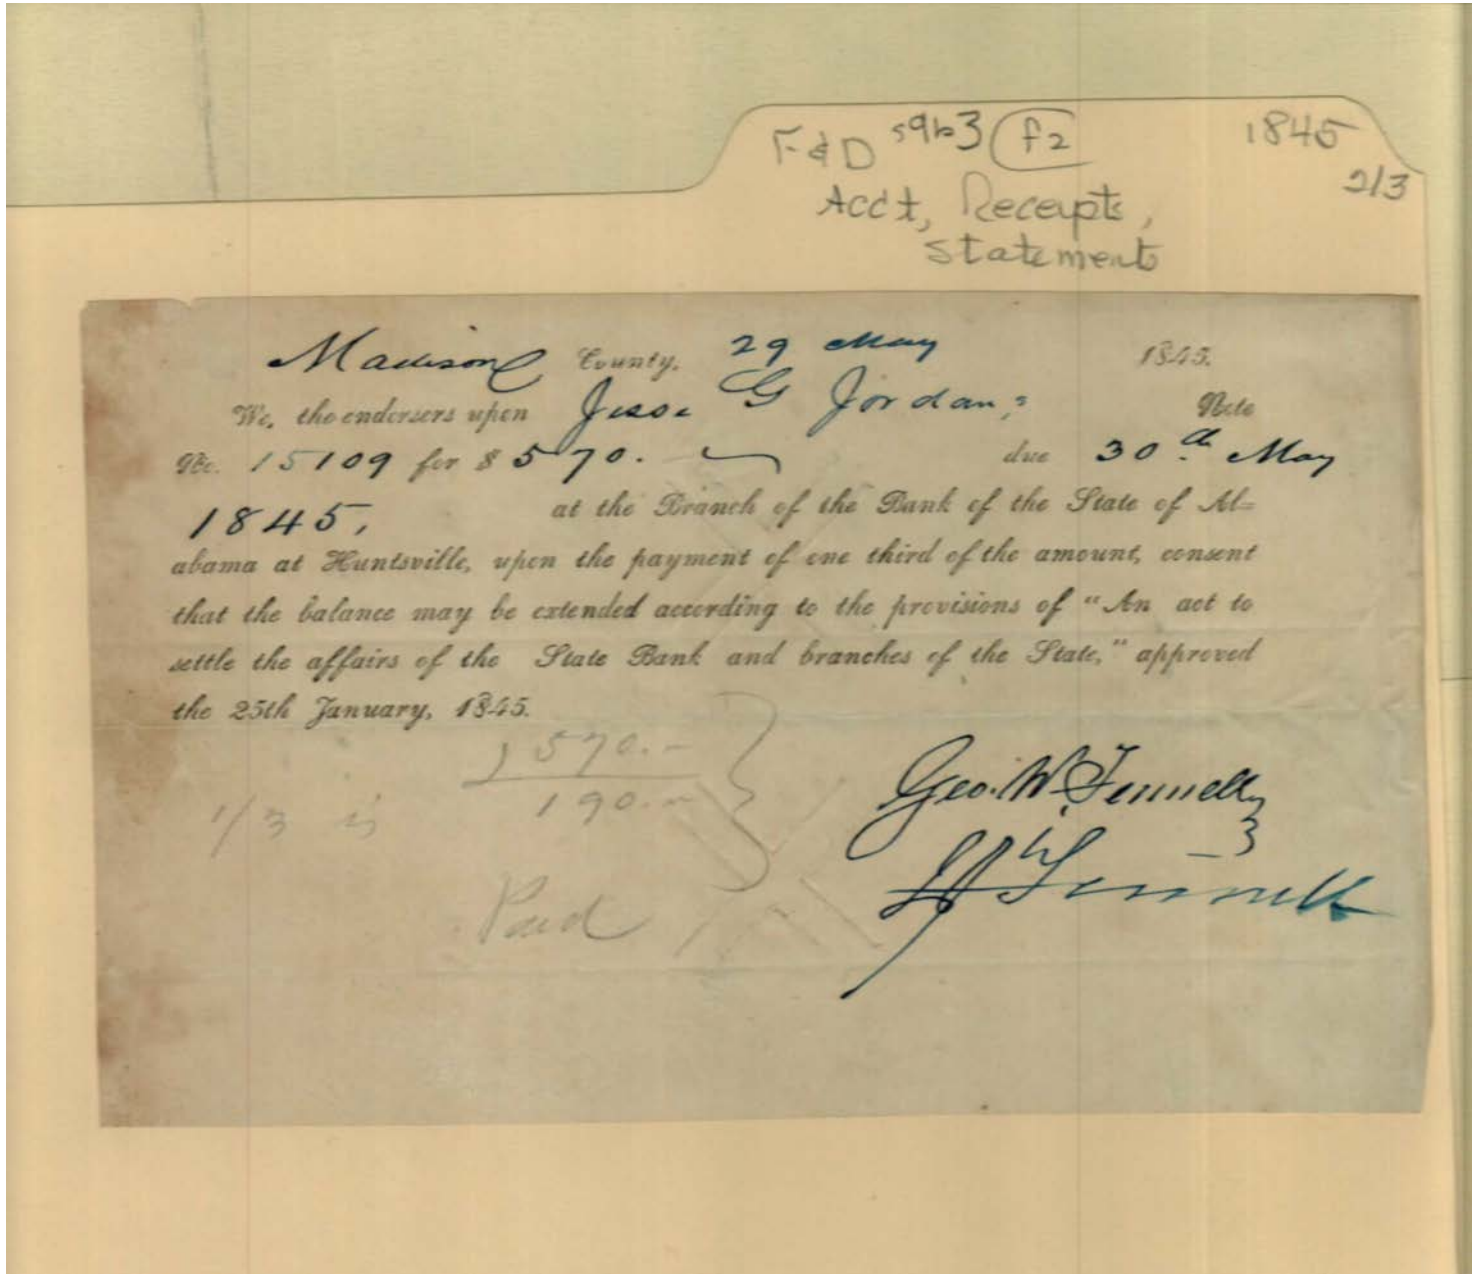 F&D s9b3 f2 1845
2/3
Acct, Receipts,
Statements
Madison County, 29 May 1845.
We, the endorsers upon Jesse G Jordan's Note
No. 15109 for $ 570. due 30th May
1845, at the Branch of the Bank of the State of Al=
abama at Huntsville, upon the payment of one third of the amount, consent
that the balance may be extended according to the provisions of "An act to
settle the affairs of the State Bank and branches of the State," approved
the 25th January, 1845.
570.-
1/3 is 190.-
Geo. W. Fennell
Fennell
Paid